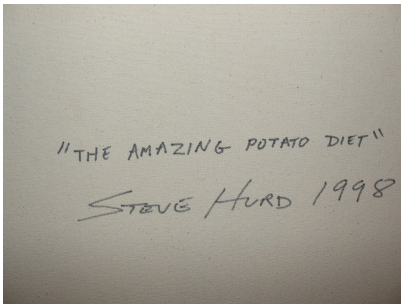 "THE AMAZING POTATO DIET"
STEVE HURD 1998